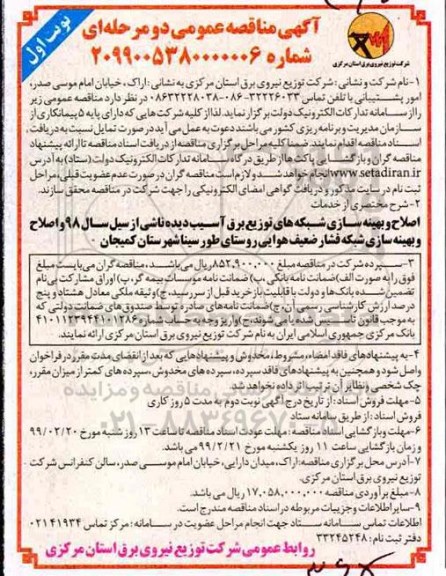 نوبت اول
آگهی مناقصه عمومی دو مرحله‌ای
شماره ۲۰۹۹۰۰۵۳۸۰۰۰۰۰۰۶
شرکت توزیع نیروی برق استان مرکزی
۱-نام شرکت و نشانی: شرکت توزیع نیروی برق استان مرکزی به نشانی: اراک، خیابان امام موسی صدر،
امور پشتیبانی با تلفن تماس ۳۲۲۲۶۰۳۳-۰۸۶-۰۸۶۳۲۲۲۸۰۳۸ در نظر دارد مناقصه عمومی زیر
را از سامانه تدارکات الکترونیک دولت برگزار نماید. لذا از کلیه شرکت‌هایی که دارای پایه ۵ پیمانکاری از
سازمان مدیریت و برنامه ریزی کشور می باشند دعوت به عمل می آید در صورت تمایل نسبت به دریافت
اسناد مناقصه اقدام نمایند. ضمنا کلیه مراحل برگزاری مناقصه از دریافت اسناد مناقصه تا ارائه پیشنهاد
مناقصه گران و بازگشایی پاکت‌ها از طریق درگاه سامانه تدارکات الکترونیک دولت (ستاد) به آدرس
www.setadiran.ir انجام خواهد شد و لازم است مناقصه گران در صورت عدم عضویت قبلی، مراحل
ثبت نام در سایت مذکور و دریافت گواهی امضای الکترونیکی را جهت شرکت در مناقصه محقق سازند.
۲- شرح مختصری از خدمات
اصلاح و بهینه سازی شبکه های توزیع برق آسیب دیده ناشی از سیل سال ۹۸ و اصلاح
و بهینه سازی شبکه فشار ضعیف هوایی روستای طور سینا شهرستان کمیجان
۳-سپرده شرکت در مناقصه مبلغ ۸۵۲,۹۰۰,۰۰۰ ریال می باشد. مناقصه گران می بایست مبلغ
فوق را به صورت الف)ضمانت نامه بانکی، ب)ضمانت نامه موسسات بیمه گر، پ) اوراق مشارکت بی نام
تضمین شده بانک‌ها و دولت با قابلیت باز خرید قبل از سررسید، ج)وثیقه ملکی معادل هشتاد و پنج
درصد ارزش کارشناسی رسمی آن، چ)ضمانت نامه‌های صادره توسط صندوق های ضمانت دولتی که
به موجب قانون تاسیس شده یا می شوند، ح)واریز وجه به حساب شماره ۴۱۰۱۱۲۳۹۴۴۰۰۱۲۸۶
بانک مرکزی جمهوری اسلامی ایران به نام شرکت توزیع نیروی برق استان مرکزی ارائه نمایند.
۴-به پیشنهادهای فاقد امضاء، مشروط، مخدوش و پیشنهادهایی که بعد از انقضای مدت مقرر در فراخوان
واصل شود و همچنین به پیشنهادهای فاقد سپرده، سپرده های مخدوش، سپرده های کمتر از میزان مقرر،
چک شخصی و نظایر آن ترتیب اثر داده نخواهد شد.
۵- مهلت فروش اسناد: از تاریخ درج آگهی نوبت دوم به مدت ۵ روز کاری
فروش اسناد: از طریق سامانه ستاد
۶-مهلت و بازگشایی اسناد مناقصه: مهلت عودت اسناد مناقصه تا ساعت ۱۳ روز شنبه مورخ ۹۹/۰۲/۲۰
و زمان بازگشایی ساعت ۱۱ روز یکشنبه مورخ ۹۹/۲/۲۱ می باشد.
۷-آدرس محل برگزاری مناقصه: اراک، میدان دارایی، خیابان امام موسی صدر، سالن کنفرانس شرکت
توزیع نیروی برق استان مرکزی.
۸-مبلغ برآوردی مناقصه ۱۷,۰۵۸,۰۰۰,۰۰۰ ریال می باشد.
۹-سایر اطلاعات و جزییات مربوطه در اسناد مناقصه مندرج است.
اطلاعات تماس سامانه ستاد جهت انجام مراحل عضویت در سامانه: مرکز تماس ۰۲۱۴۱۹۳۴
دفتر ثبت نام: ۳۳۲۴۵۲۴۸
روابط عمومی شرکت توزیع نیروی برق استان مرکزی